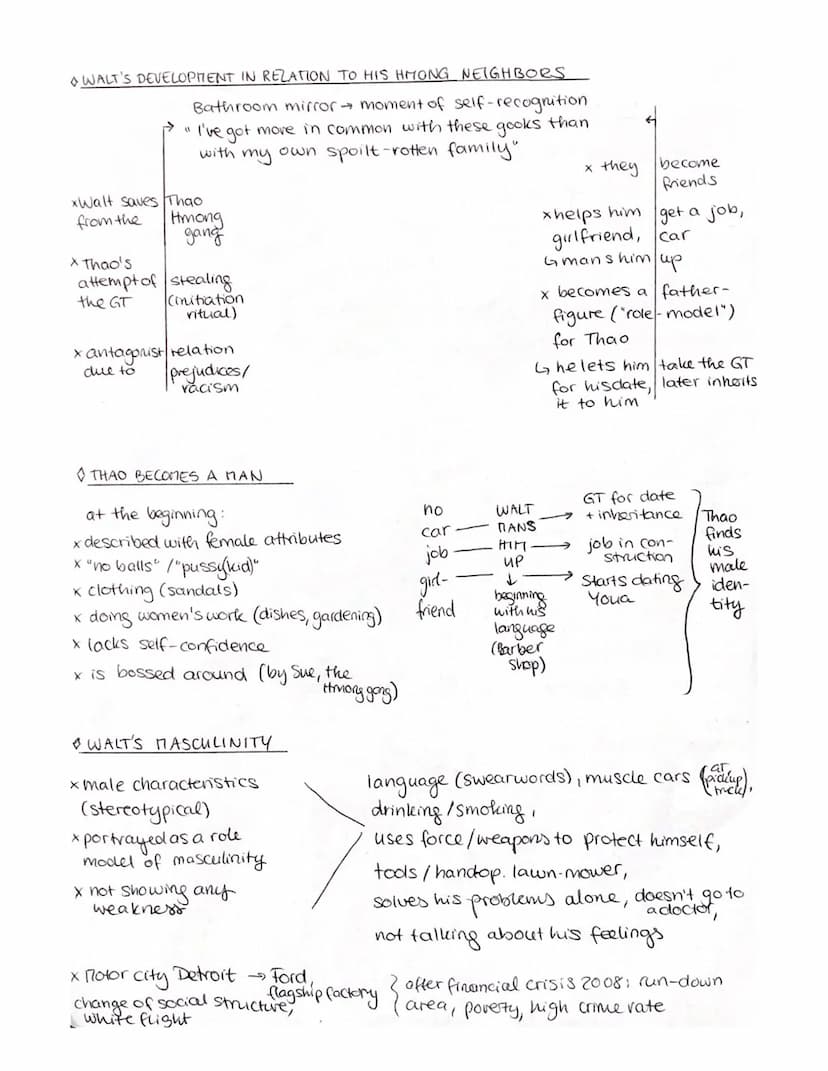 ◊ WALT'S DEVELOPMENT IN RELATION TO HIS HMONG NEIGHBORS
Bathroom mirror → moment of self-recognition
"I've got more in common with these gooks than
with my own spoilt-rotten family"
x Walt saves Thao
from the Hmong
gang
x Thao's
attempt of stealing
the GT (initiation
ritual)
x antagonist relation
due to prejudices/
racism
x they become
friends
x helps him get a job,
girlfriend, car
↳ mans him up
x becomes a father-
figure ("role-model")
for Thao
↳ he lets him take the GT
for his date, later inherits
it to him
◊ THAO BECOMES A MAN
at the beginning:
x described with female attributes
x "no balls"/"pussy(kid)"
x clothing (sandals)
x doing women's work (dishes, gardening)
x lacks self-confidence
x is bossed around (by Sue, the
Hmong gang)
no
car
job
girl-
friend
WALT
MANS
HIM
UP
↓
beginning
with his
language
(Barber
Shop)
GT for date
+ inheritance
job in con-
struction
starts dating
Youa
Thao
finds
his
male
iden-
tity
◊ WALT'S MASCULINITY
x male characteristics
(stereotypical)
x portrayed as a role
model of masculinity
x not showing any
weakness
language (swearwords), muscle cars (GT, pickup truck),
drinking/smoking,
uses force/weapons to protect himself,
tools/handop. lawn-mower,
solves his problems alone, doesn't go to
a doctor,
not talking about his feelings
x Motor City Detroit → Ford,
flagship factory
change of social structure,
white flight
after financial crisis 2008: run-down
area, poverty, high crime rate